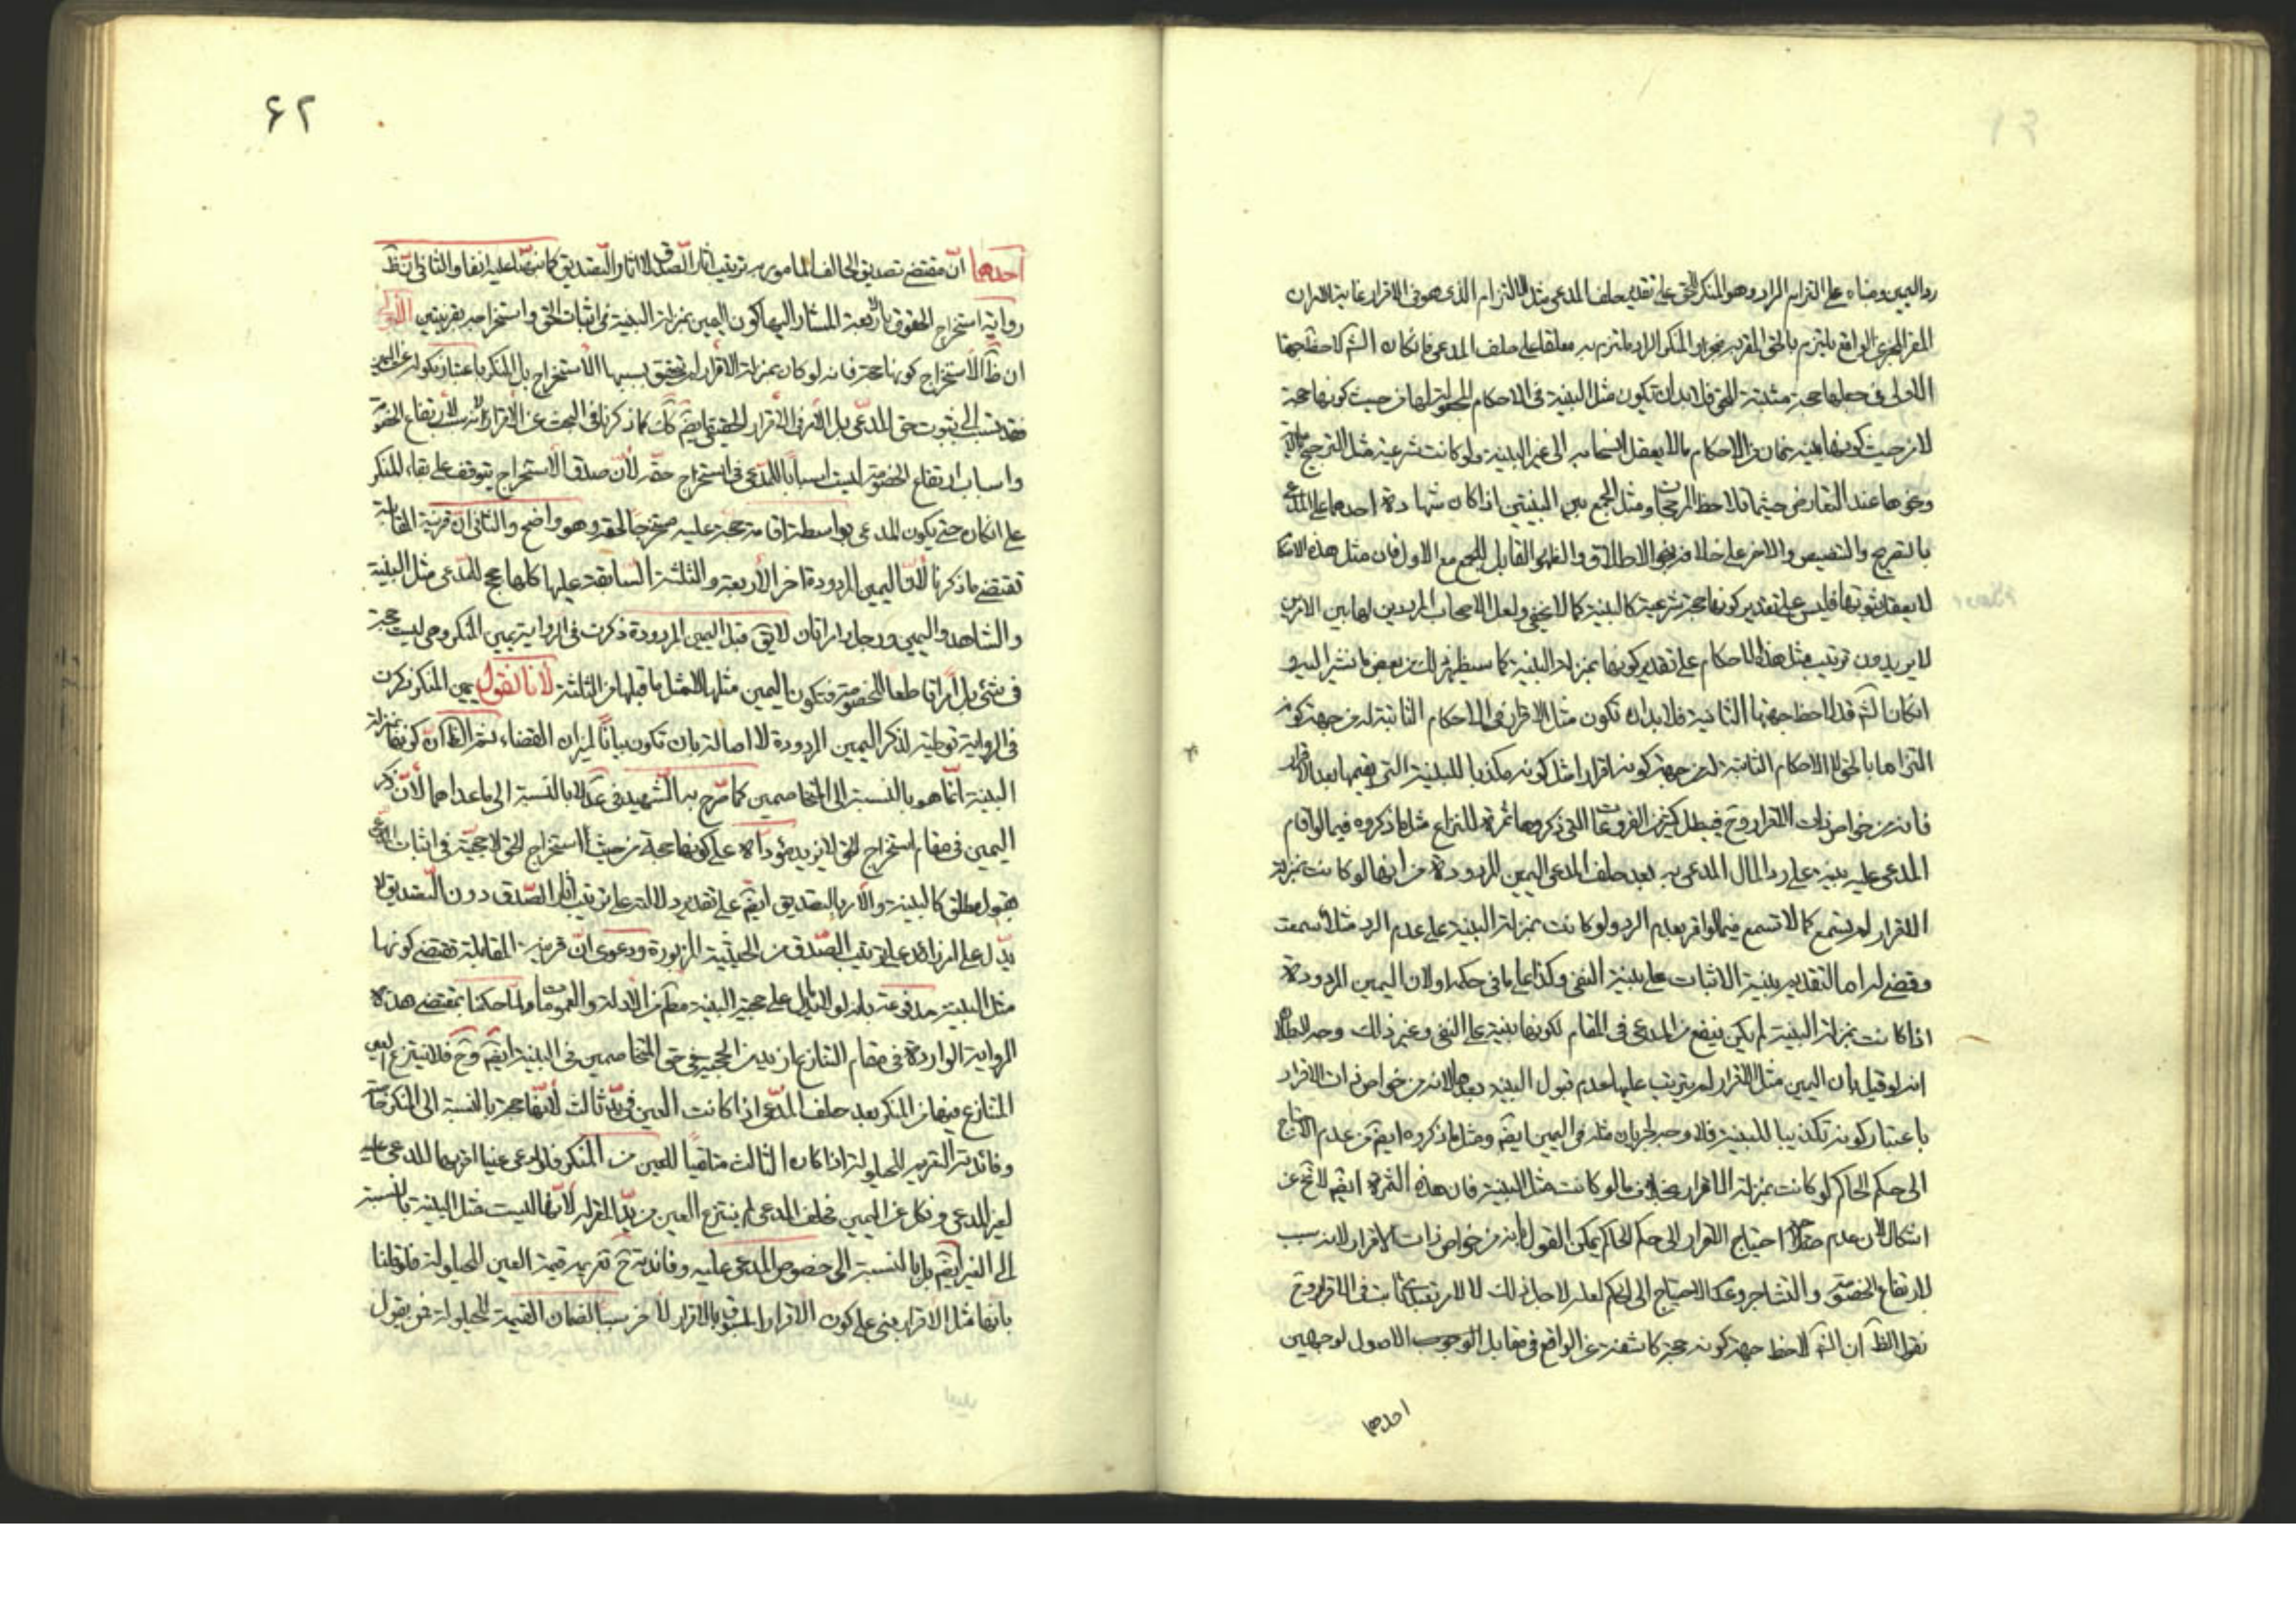 رد اليمين ومعناه على التزام الراد وهو المنكر الحق على تقدير حلف المدعى مثل الالتزام الذى هو فى الاقرار غاية الامر ان
المقر بالحق فى الواقع يلتزم بالحق المقر به والمنكر الراد يلتزم به معلقا على حلف المدعى فان كان الش لاحظ جهتها
الاولى فى جعلها حجة مثبتة للحق فلا بد ان تكون مثل البينة فى الاحكام المجعولة لها من حيث كونها حجة
لا من حيث كونها بينة فان من الاحكام ما لا يعقل انسحابه الى غير البينة ولو كانت شرعية مثل الترجيح
ونحوها عند التعارض حيثما تلاحظ المرجحات ومثل الجمع بين البينتين اذا كان شهادة احدهما على المدعى
بالتصريح والتنصيص والاخر على خلافه بنحو الاطلاق والظهور القابل للجمع مع الاول فان مثل هذه
لا يعقل ثبوتها فليس على تقدير كونها حجة شرعية كالبينة كما لا يخفى ولعل الاصحاب المرددين لها بين الامرين
لا يريدون ترتيب مثل هذه الاحكام على تقدير كونها بمنزلة البينة كما سيظهر ذلك من بعض ما نشير اليه و
ان كان الش قد لاحظ جهتها الثانية فلا بد ان تكون مثل الاقرار فى الاحكام الثابتة له من جهة كونه
التزاما بالحق لا الاحكام الثابتة له من جهة كونه اقرارا مثل كونه مكذبا للبينة التى يقيمها بعد الاقرار
فانه من خواص ذات الاقرار وح فيبطل كثير من الفروعات التى ذكروها ثمرة للنزاع مثل ما ذكروه فيما لو اقام
المدعى عليه بينة على رد المال المدعى به بعد حلف المدعى اليمين المردودة من انها لو كانت بمنزلة
الاقرار لم يستمع كما لا تسمع فيما لو اقر بعدم الرد ولو كانت بمنزلة البينة على عدم الرد مثلا سمعت
وقضى له اما لتقديم بينة الاثبات على بينة النفى وكذا على ما فى حكمه او لان اليمين المردودة
اذا كانت بمنزلة البينة لم يكن ينفع المدعى فى المقام لكونها بينة على النفى وغير ذلك وجه البطلان
انه لو قيل بان اليمين مثل الاقرار لم يترتب عليها عدم قبول البينة بعدها لانه من خواص ذات الاقرار
باعتبار كونه تكذيبا للبينة فلا وجه لجريان مثله فى اليمين ايضم ومثل ما ذكروه ايضم من عدم الاحتياج
الى حكم الحاكم لو كانت بمنزلة الاقرار بخلاف ما لو كانت مثل البينة فان هذه الثمرة ايضم لا تخ عن
اشكال لان عدم احتياج الاقرار الى حكم الحاكم يمكن القول بانه من خواص ذات الاقرار لانه سبب
لارتفاع الخصومة والتشاجر وعدم الاحتياج الى الحكم لعله لاجل ذلك لا لامر تعبدى ثابت فى الاقرار وح
نقول الظ ان الش لاحظ جهة كونه حجة كاشفة عن الواقع فى مقابل الاصول لوجهين
احدهما
۶۲
احدهما ان مقتضى تصديق الحالف المامور به ترتيب اثار الصدق لا اثار التصديق كما نبهنا عليه انفا والثانى ان ظ
رواية استخراج الحقوق باربعة المشار اليها كون اليمين بمنزلة البينة فى اثبات الحق واستخراجه بقرينتين الاولى
ان ظ الاستخراج كونها حجة فانه لو كان بمنزلة الاقرار لم يتحقق بسببها الاستخراج بل المنكر باعتبار نكوله عن اليمين
فقد تسبب الى ثبوت حق المدعى بل الامر فى الاقرار الحقيقى ايضم كك كما ذكرنا فى البحث عن الاقرار لانه سبب لارتفاع الخصومة
واسباب ارتفاع الخصومة ليست اسبابا للمدعى فى استخراج حقه لان صدق الاستخراج يتوقف على بقاء المنكر
على انكاره حتى يكون المدعى بواسطة اقامة حجة عليه مخرجا لحقه وهو واضح والثانى ان قرينة المقابلة
تقتضى ما ذكرنا لان اليمين المردودة اخر الاربعة والثلثة السابقة عليها كلها حجج للمدعى مثل البينة
والشاهد واليمين ورجل وامراتان لا يق قبل اليمين المردودة ذكرت فى الرواية يمين المنكر وهى ليست حجة
فى شئ بل امرا قاطعا للخصومة فتكون اليمين مثلها لا مثل ما قبلها من الثلثة لانا نقول يمين المنكر ذكرت
فى الرواية توطئة لذكر اليمين المردودة لا اصالة بان تكون بيانا لميزان القضاء ثم الظ ان كونها بمنزلة
البينة انما هو بالنسبة الى المتخاصمين كما صرح به الشهيد فى عد لا بالنسبة الى ما عداهما لان ذكر
اليمين فى مقام استخراج الحق لا يزيد مؤداه على كونها حجة من حيث استخراج الحق لا حجية فى اثبات المدعى
بقول مطلق كالبينة والامر بالتصديق ايضم على تقدير دلالته على ترتيب اثار الصدق دون التصديق لا
يدل على ازيد من ترتيب الصدق من الحيثية المزبورة ودعوى ان قرينة المقابلة تقتضى كونها
مثل البينة مدفوعة بانه لولا الدليل على حجية البينة مطلقا من الادلة والعمومات لما حكمنا بمقتضى هذه
الرواية الواردة فى مقام التنازع بازيد من الحجية فى حق المتخاصمين فى البينة ايضم وح فلا ينتزع العين
المتنازع فيها من المنكر بعد حلف المدعى اذا كانت العين فى يد ثالث لانها حجة بالنسبة الى المنكر خاصة
وفائدته التغريم للحيلولة اذا كان الثالث متلقيا للعين من المنكر فلو ادعى عينا اقر بها المدعى عليه
لغير المدعى ونكل عن اليمين فحلف المدعى لم ينتزع العين من يد المقر له لانها ليست مثل البينة بالنسبة
الى الغير ايضم بل بالنسبة الى خصوص المدعى عليه وفائدته ح تغريم قيمة العين للحيلولة فلو قلنا
بانها مثل الاقرار يبنى على كون الاقرار المسبوق بالاقرار لاخر سببا لضمان القيمة للحيلولة فمن يقول